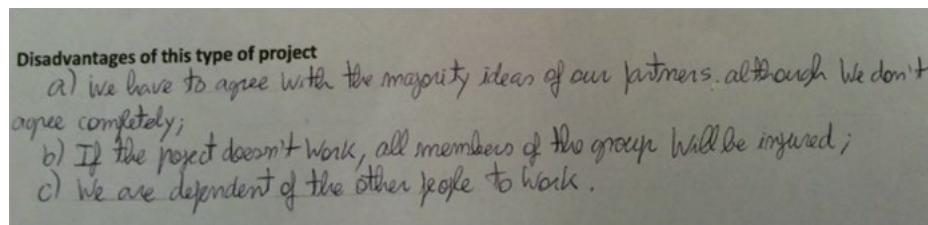 Disadvantages of this type of project
a) we have to agree with the magority ideas of our partners. although We don't
agree completely;
b) If the poject doesn't Work, all members of the group Will be injured;
c) We are dependent of the other people to Work.